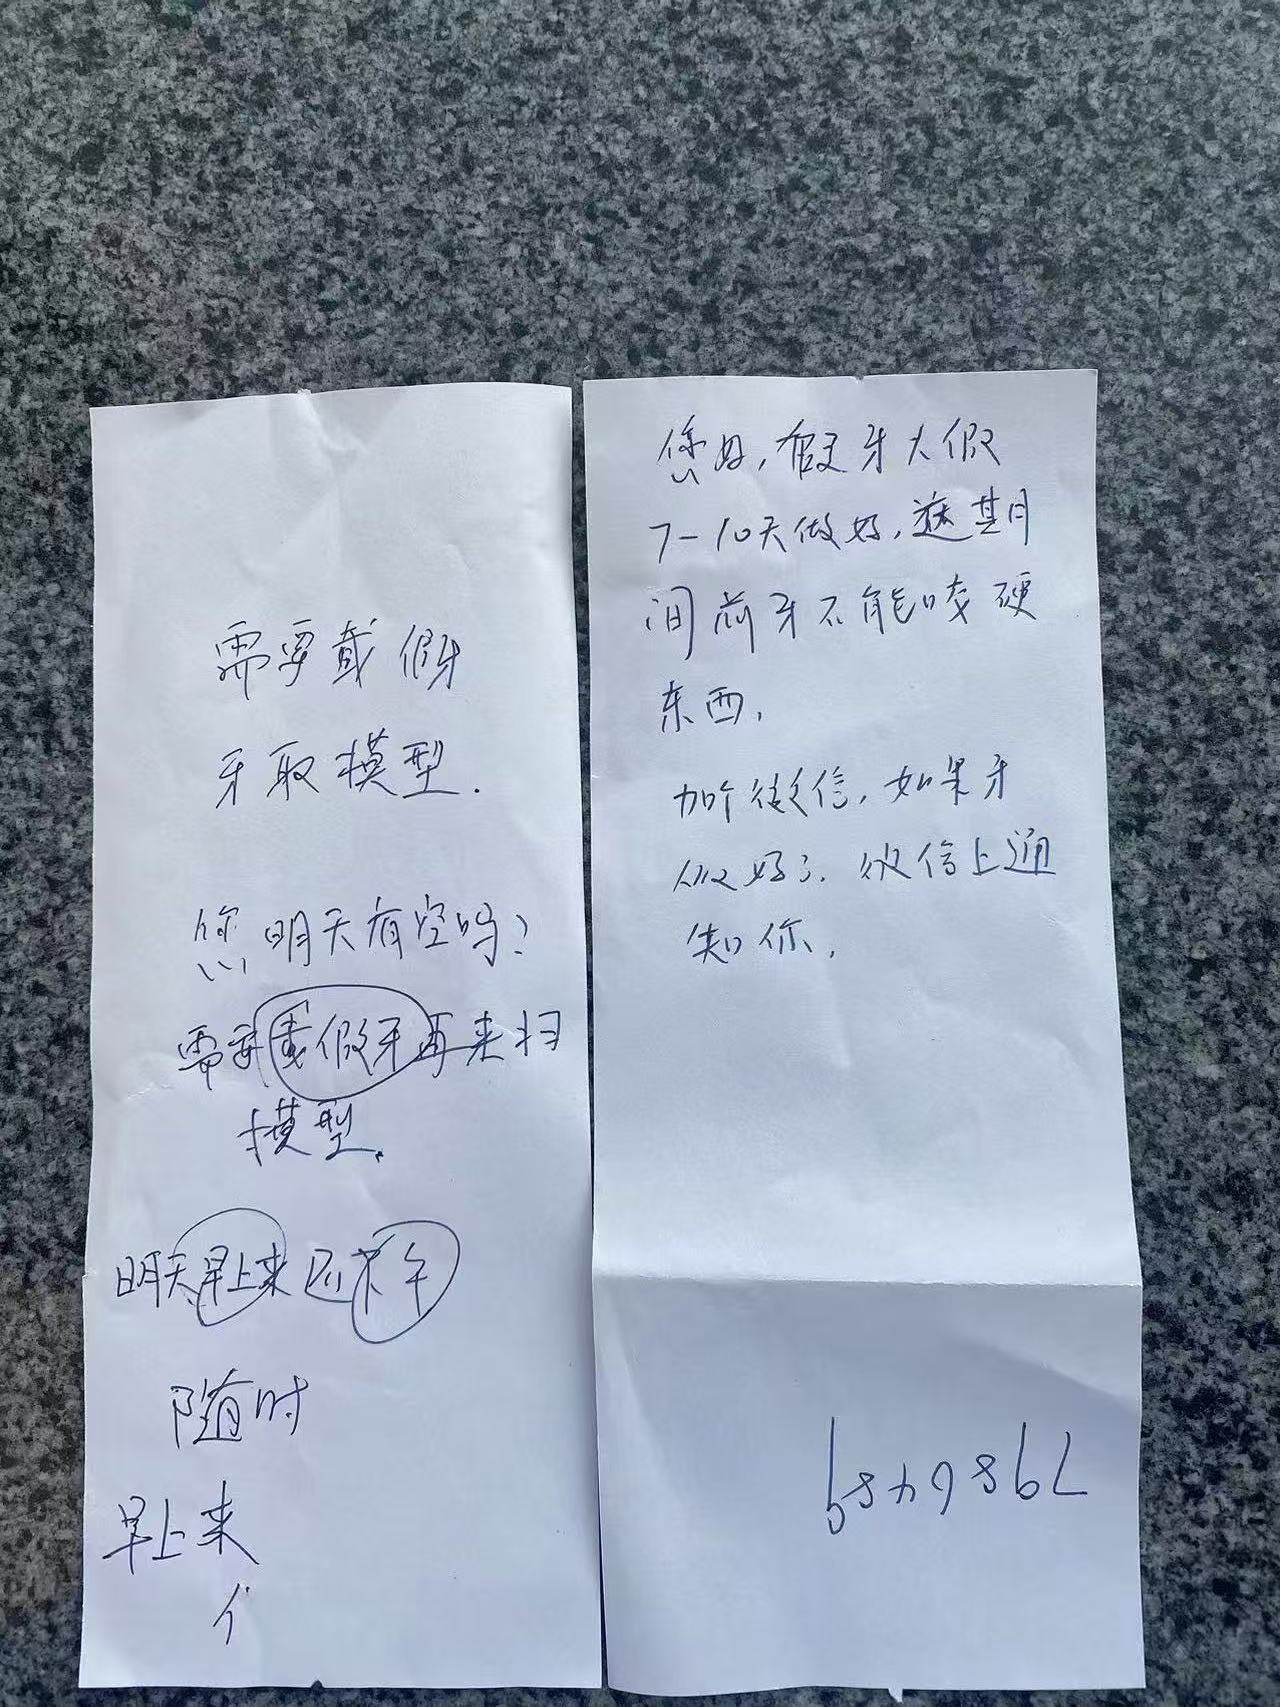 需要戴假牙
牙取模型.
您明天有空吗?
需要戴假牙再来扫
模型.
明天早上来还下午
随时
早上来
您好,假牙大假
7-10天做好,这其月
间前牙不能咬硬
东西,
加个微信,如果牙
做好了.微信上通
知你,